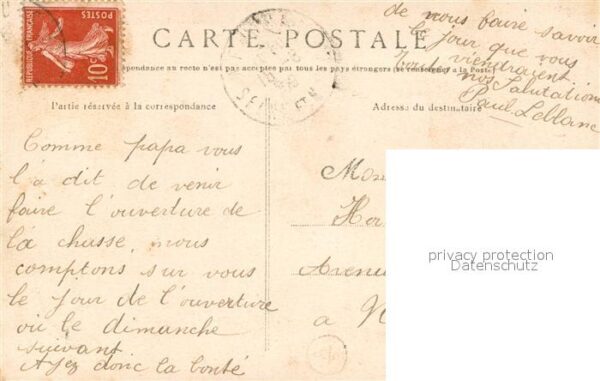 RÉPUBLIQUE FRANÇAISE
10c
CARTE POSTALE
La Correspondance au recto n'est pas acceptée par tous les pays étrangers (se renseigner à la Poste)
Partie réservée à la correspondance
Adresse du destinataire
Comme papa vous
l'a dit de venir
faire l'ouverture de
la chasse, nous
comptons sur vous
le jour de l'ouverture
où le dimanche
suivant
Ayez donc la bonté
de nous faire savoir
le jour que vous
viendrayent
nos salutations
Paul Leblanc
Mon
Hor
Avenu
a N
privacy protection
Datenschutz